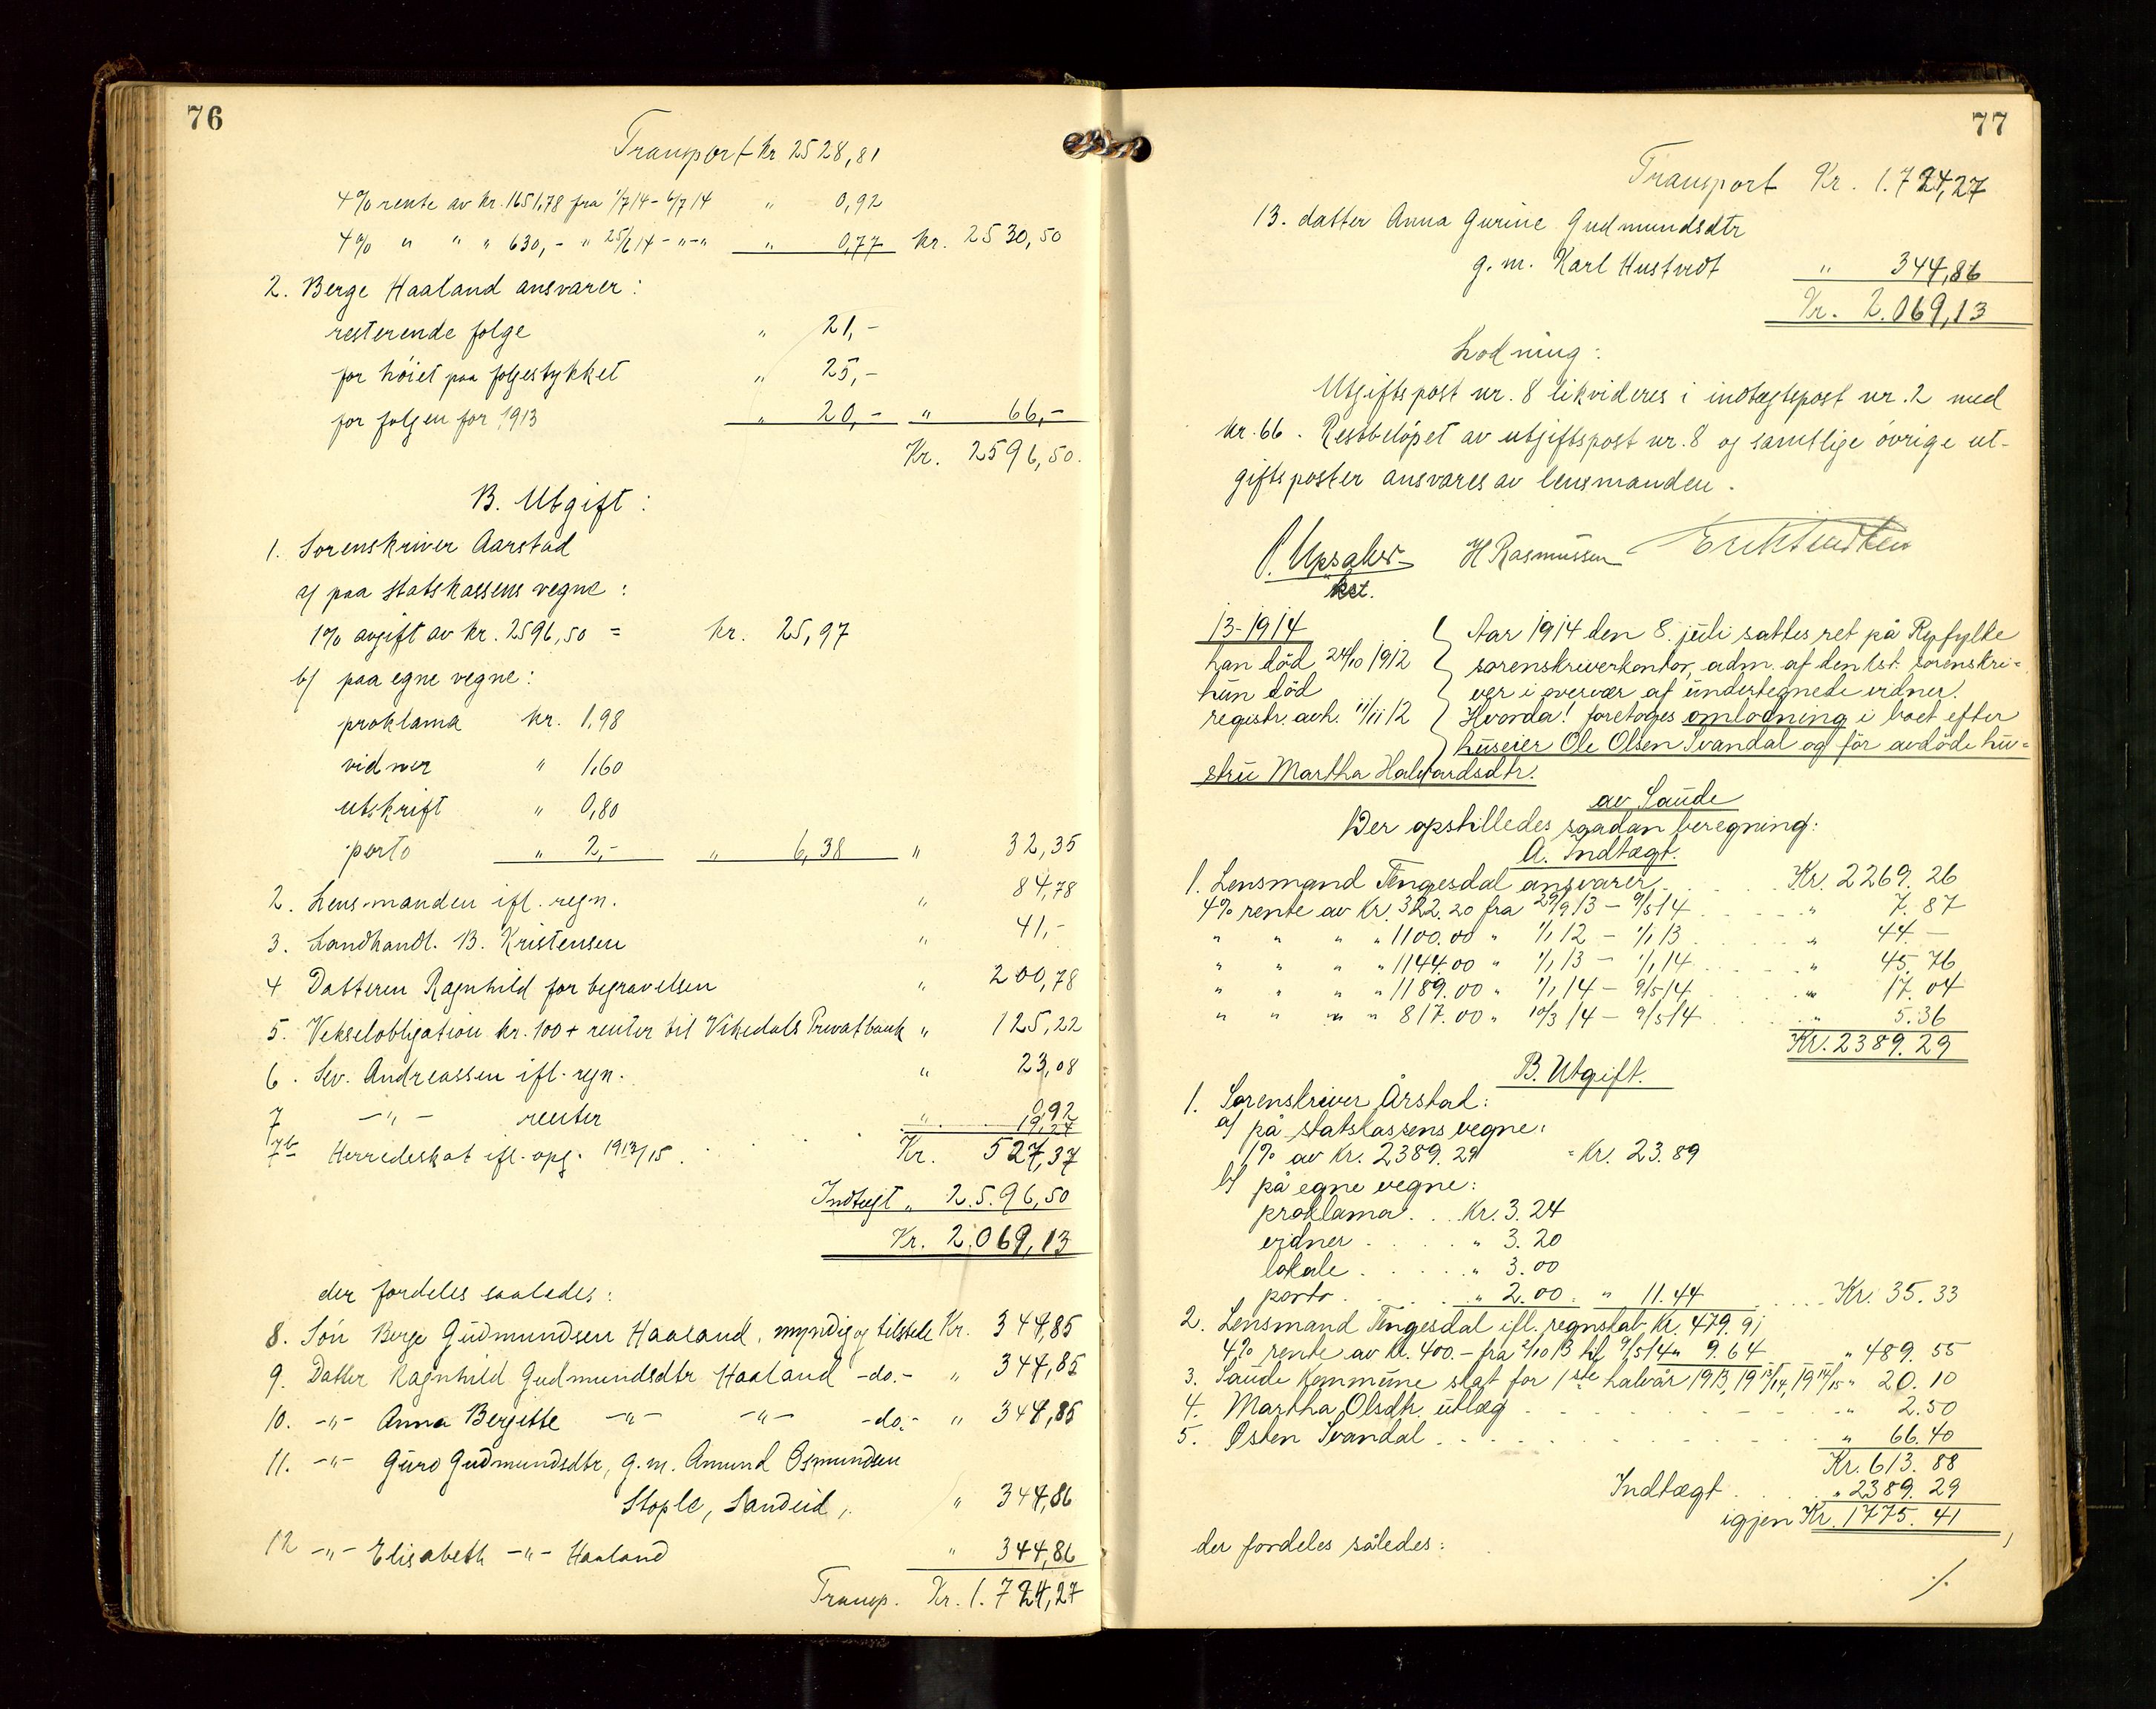 76
Transport kr 2528,81
4% rente av kr. 1651,78 fra 1/7 14 - 6/7 14 " 0,92
4% " " " 630,- " 25/6 14 - " - " " 0,77 kr. 2530,50
2. Berge Haaland ansvarer:
resterende følge " 21,-
for höiet paa følgestykket " 25,-
for følgen for 1913 " 20,- " 66,-
Kr. 2596,50.
B. Utgift:
1. Sorenskriver Aarstad
a) paa statskassens vegne:
1% avgift av kr. 2596,50 = kr. 25,97
b) paa egne vegne:
proklama kr. 1,98
vidner " 1,60
utskrift " 0,80
porto " 2,- " 6,38 " 32,35
2. Lensmanden ifl. regn. " 84,78
3. Landhandl. B. Kristensen " 41,-
4 Datteren Ragnhild for begravelsen " 200,78
5. Vekselobligation kr. 100 + renter til Vikedals Privatbank " 125,22
6. Sev. Andreassen ifl. regn. " 23,08
7 - " - renter " 0,92
7b Herredeskat ifl. opg. 1913/15 . 19,24
Kr. 527,37
Indtægt " 2.596,50
Kr. 2.069,13
der fordeles saaledes:
8. Sön Berge Gudmundsen Haaland, myndig og tilstede Kr. 344,85
9. Datter Ragnhild Gudmundsdtr Haaland -do.- " 344,85
10. -"- Anna Bergitte -"- -"- -do.- " 344,85
11. -"- Guro Gudmundsdtr, g.m. Amund Osmundsen
Stople, Sandeid, " 344,86
12 -"- Elisabeth -"- Haaland " 344,86
Transp. Kr. 1.724,27
77
Transport Kr. 1.724,27
13. datter Anna Gurine Gudmundsdtr
g.m. Karl Hustvedt " 344,86
Kr. 2.069,13
Lodning:
Utgiftspost nr. 8 likvideres i indtægtspost nr. 2 med
kr. 66. Restbelöpet av utgiftspost nr. 8 og samtlige övrige ut-
giftsposter ansvares av lensmanden.
H Rasmussen
kst.
13-1914
han död 24/10 1912
hun död
registr. avh. 11/11 12
Aar 1914 den 8. juli sattes ret på Ryfylke
sorenskriverkontor, adm. af den kst. sorenskri-
ver i overvær af undertegnede vidner.
Hvorda! foretoges omlodning i boet efter
huseier Ole Olsen Svandal og för avdöde hu-
stru Martha Halvardsdtr.
av Saude
Der opstilledes saadan beregning:
A. Indtægt.
1. Lensmand Tengesdal ansvarer . . . Kr. 2269.26
4% rente av Kr. 322.20 fra 29/9 13 - 9/5 14 . . . " 7.87
" " " " 1100.00 " 1/1 12 - 1/1 13 . . . " 44.-
" " " " 1144.00 " 1/1 13 - 1/1 14 . . . " 45.76
" " " " 1189.00 " 1/1 14 - 9/5 14 . . . " 17.04
" " " " 817.00 " 10/3 14 - 9/5 14 . . . " 5.36
Kr. 2389.29
B. Utgift.
1. Sorenskriver Årstad:
a) på statskassens vegne:
1% av Kr. 2389.29 = Kr. 23.89
b) på egne vegne:
proklama . . . Kr. 3.24
vidner . . . " 3.20
lokale . . . " 3.00
porto . . . " 2.00. " 11.44 . . . Kr. 35.33
2. Lensmand Tengesdal ifl. regnskab Kr. 479.91
4% rente av Kr. 400.- fra 2/10 13 til 9/5 14 " 9.64 " 489.55
3. Saude Kommune skat for 1ste halvår 1913, 1913/14, 1914/15 " 20.10
4. Martha Olsdtr. utlæg . . . " 2.50
5. Østen Svandal . . . " 66.40
Kr. 613.88
Indtægt . . . " 2389.29
igjen Kr. 1775.41
der fordeles således:
./.